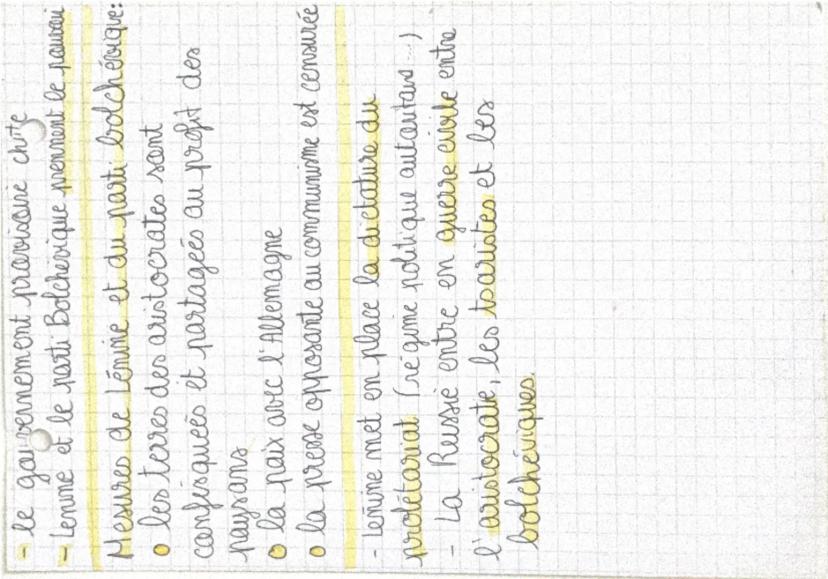 - le gouvernement provisoire chute
- Lénine et le parti Bolchévique prennent le pouvoir
Mesures de Lénine et du parti bolchévique:
les terres des aristocrates sont
confisquées et partagées au profit des
paysans
la paix avec l'Allemagne
la presse opposante au communisme est censurée
- Lénine met en place la dictature du
prolétariat (régime politique autoritaire...)
- La Russie entre en guerre civile entre
l'aristocrate, les tsaristes et les
bolchéviques.